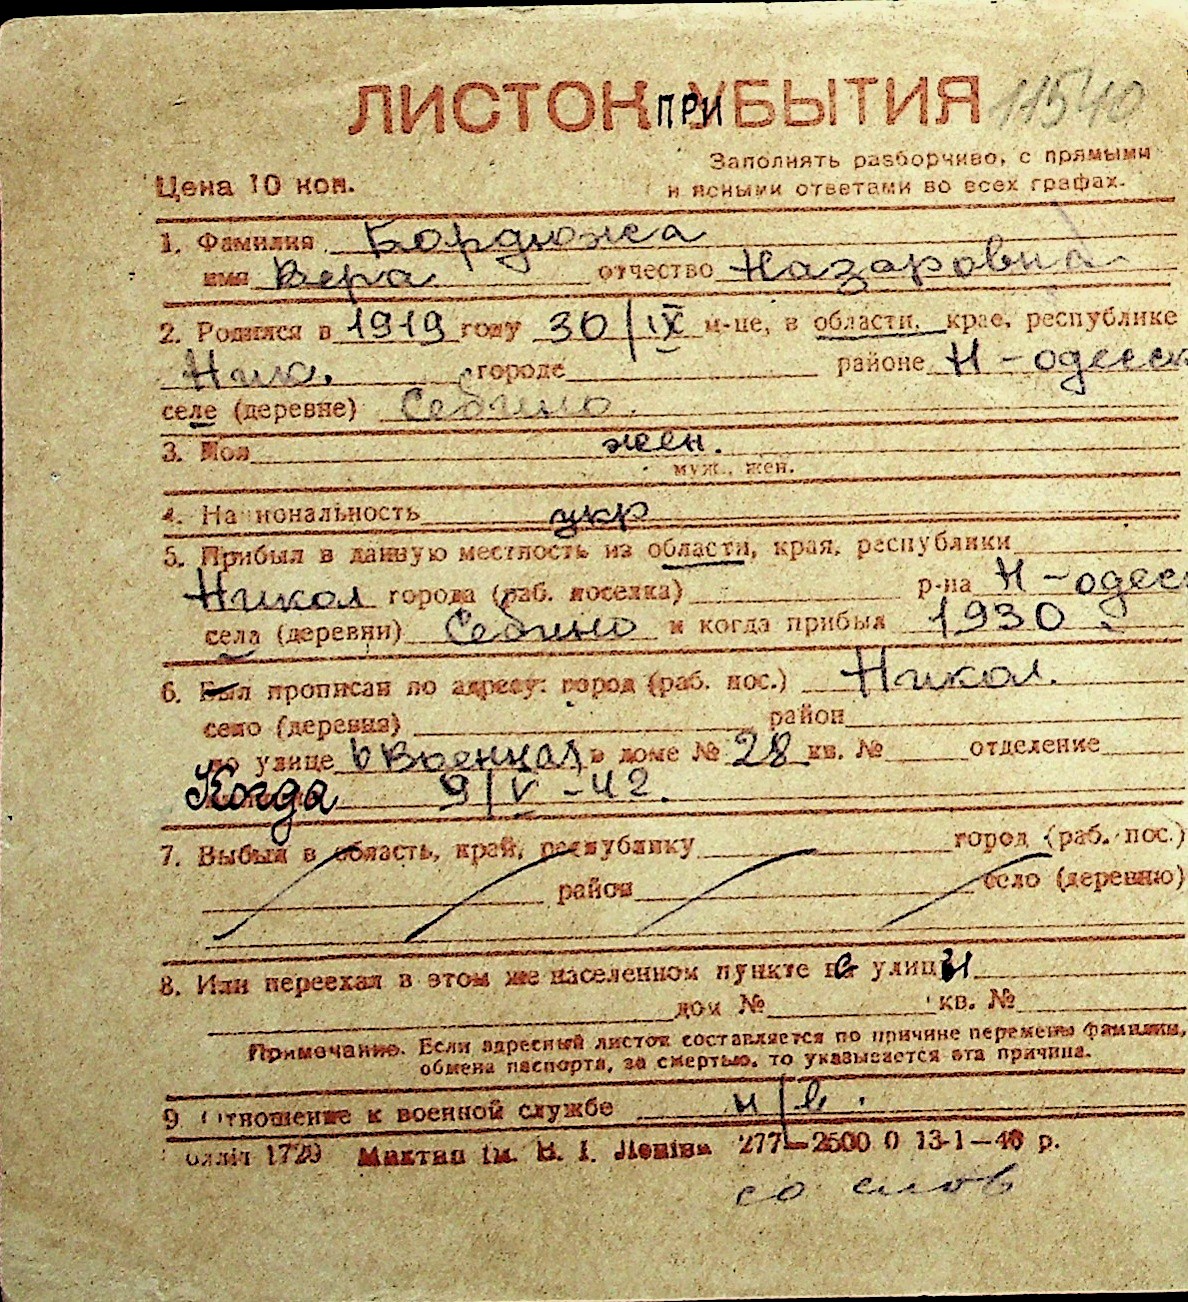 ЛИСТОК ПРИ УБЫТИЯ 11540
Заполнять разборчиво, с прямыми
и ясными ответами во всех графах.
Цена 10 коп.
1. Фамилия Бордюжа
имя Вера отчество Назаровна
2. Родился в 1919 году 30/IX м-це, в области, крае, республике
Ник. городе районе Н-одесск
селе (деревне) Себино.
3. Пол жен.
муж., жен.
4. Национальность укр
5. Прибыл в данную местность из области, края, республики
Никол города (раб. поселка) р-на Н-одесс
села (деревни) Себино и когда прибыл 1930
6. Был прописан по адресу: город (раб. пос.) Никол.
село (деревня) район
по улице Военная в доме № 28 кв. № отделение
Когда 9/V-42.
7. Выбыл в область, край, республику город (раб. пос.)
район село (деревню)
8. Или переехал в этом же населенном пункте с улицы
дом № кв. №
Примечание. Если адресный листок составляется по причине перемены фамилии,
обмена паспорта, за смертью, то указывается эта причина.
9 Отношение к военной службе н/в.
олліт 1729 Миктип ім. В. І. Леніна 277—2500 0 13-1—40 р.
со слов